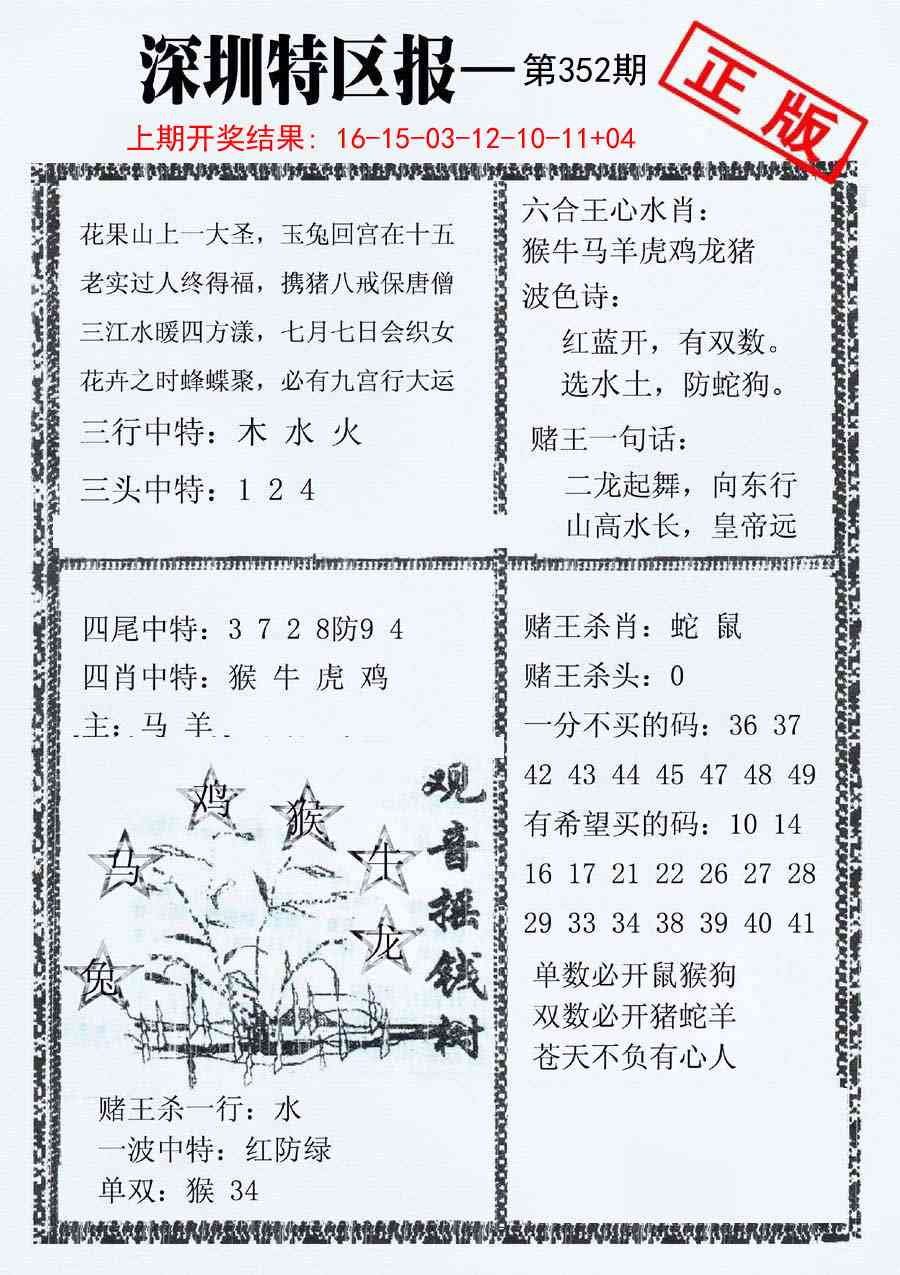 深圳特区报—第352期
正版
上期开奖结果: 16-15-03-12-10-11+04
花果山上一大圣，玉兔回宫在十五
老实过人终得福，携猪八戒保唐僧
三江水暖四方漾，七月七日会织女
花卉之时蜂蝶聚，必有九宫行大运
三行中特：木 水 火
三头中特：1 2 4
六合王心水肖：
猴牛马羊虎鸡龙猪
波色诗：
红蓝开，有双数。
选水土，防蛇狗。
赌王一句话：
二龙起舞，向东行
山高水长，皇帝远
四尾中特：3 7 2 8防9 4
四肖中特：猴 牛 虎 鸡
主：马 羊
鸡
猴
马
牛
龙
兔
观音摇钱树
赌王杀一行：水
一波中特：红防绿
单双：猴 34
赌王杀肖：蛇 鼠
赌王杀头：0
一分不买的码：36 37
42 43 44 45 47 48 49
有希望买的码：10 14
16 17 21 22 26 27 28
29 33 34 38 39 40 41
单数必开鼠猴狗
双数必开猪蛇羊
苍天不负有心人